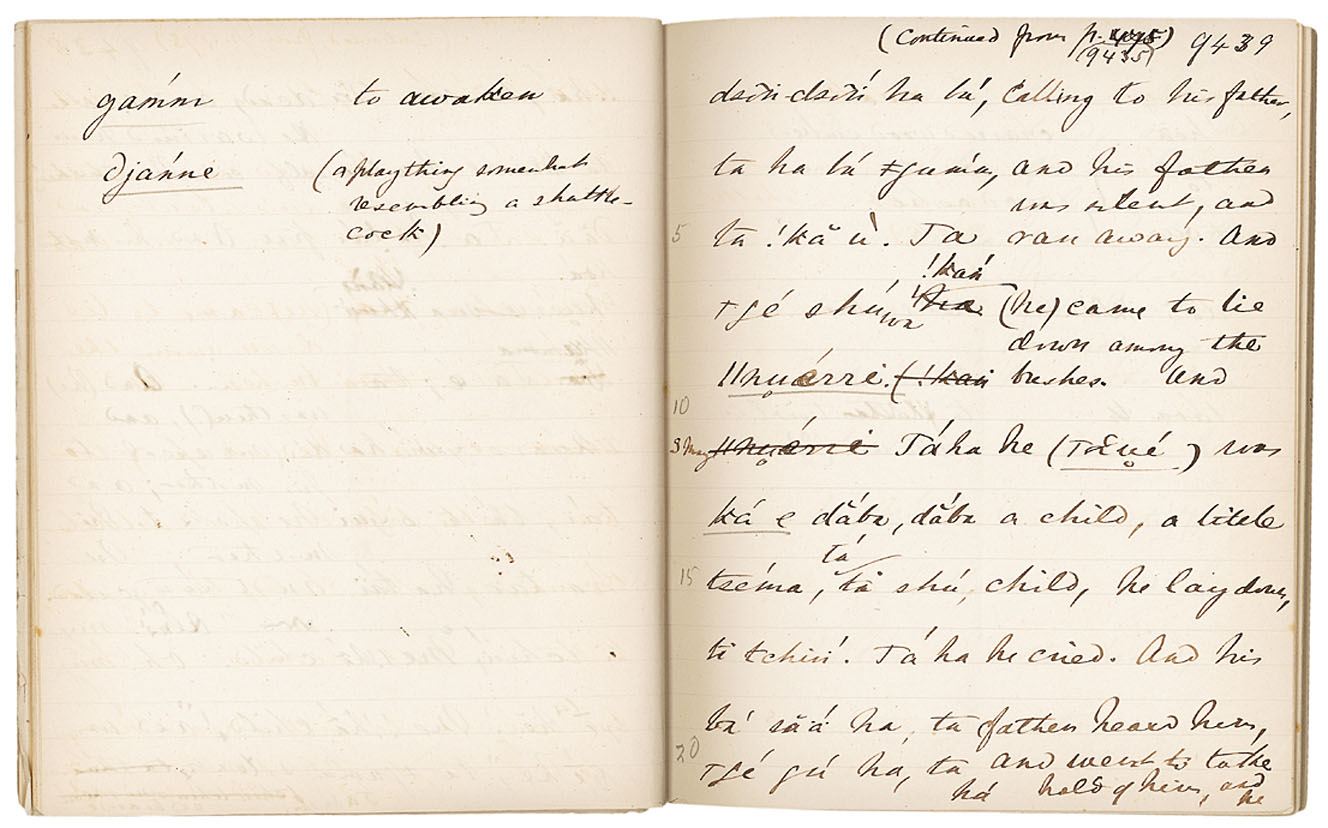 gaḿm to awaken
djánne (a plaything somewhat
resembling a shuttle-
cock)
(Continued from p.
(9435) 9439
dsōń-dsōń ha bá, calling to his father,
ta ha bá ǂgumḿ, and his father
was silent, and
5 ta !kă ù. Ta ran away. And
!kań
ǂgé shú wa (he) came to lie
down among the
||nuárri. (!kań bushes. And
10
3 May ||nuárri Táha he (Tŏĕué) was
ká e dába, dába a child, a little
tá
15 tséma, tă shú, child, he lay down,
ti tchiń. Tá ha he cried. And his
bá săá ha, ta father heard him,
20 ǂgé gú ha, ta and went to take
há hold of him, and
he